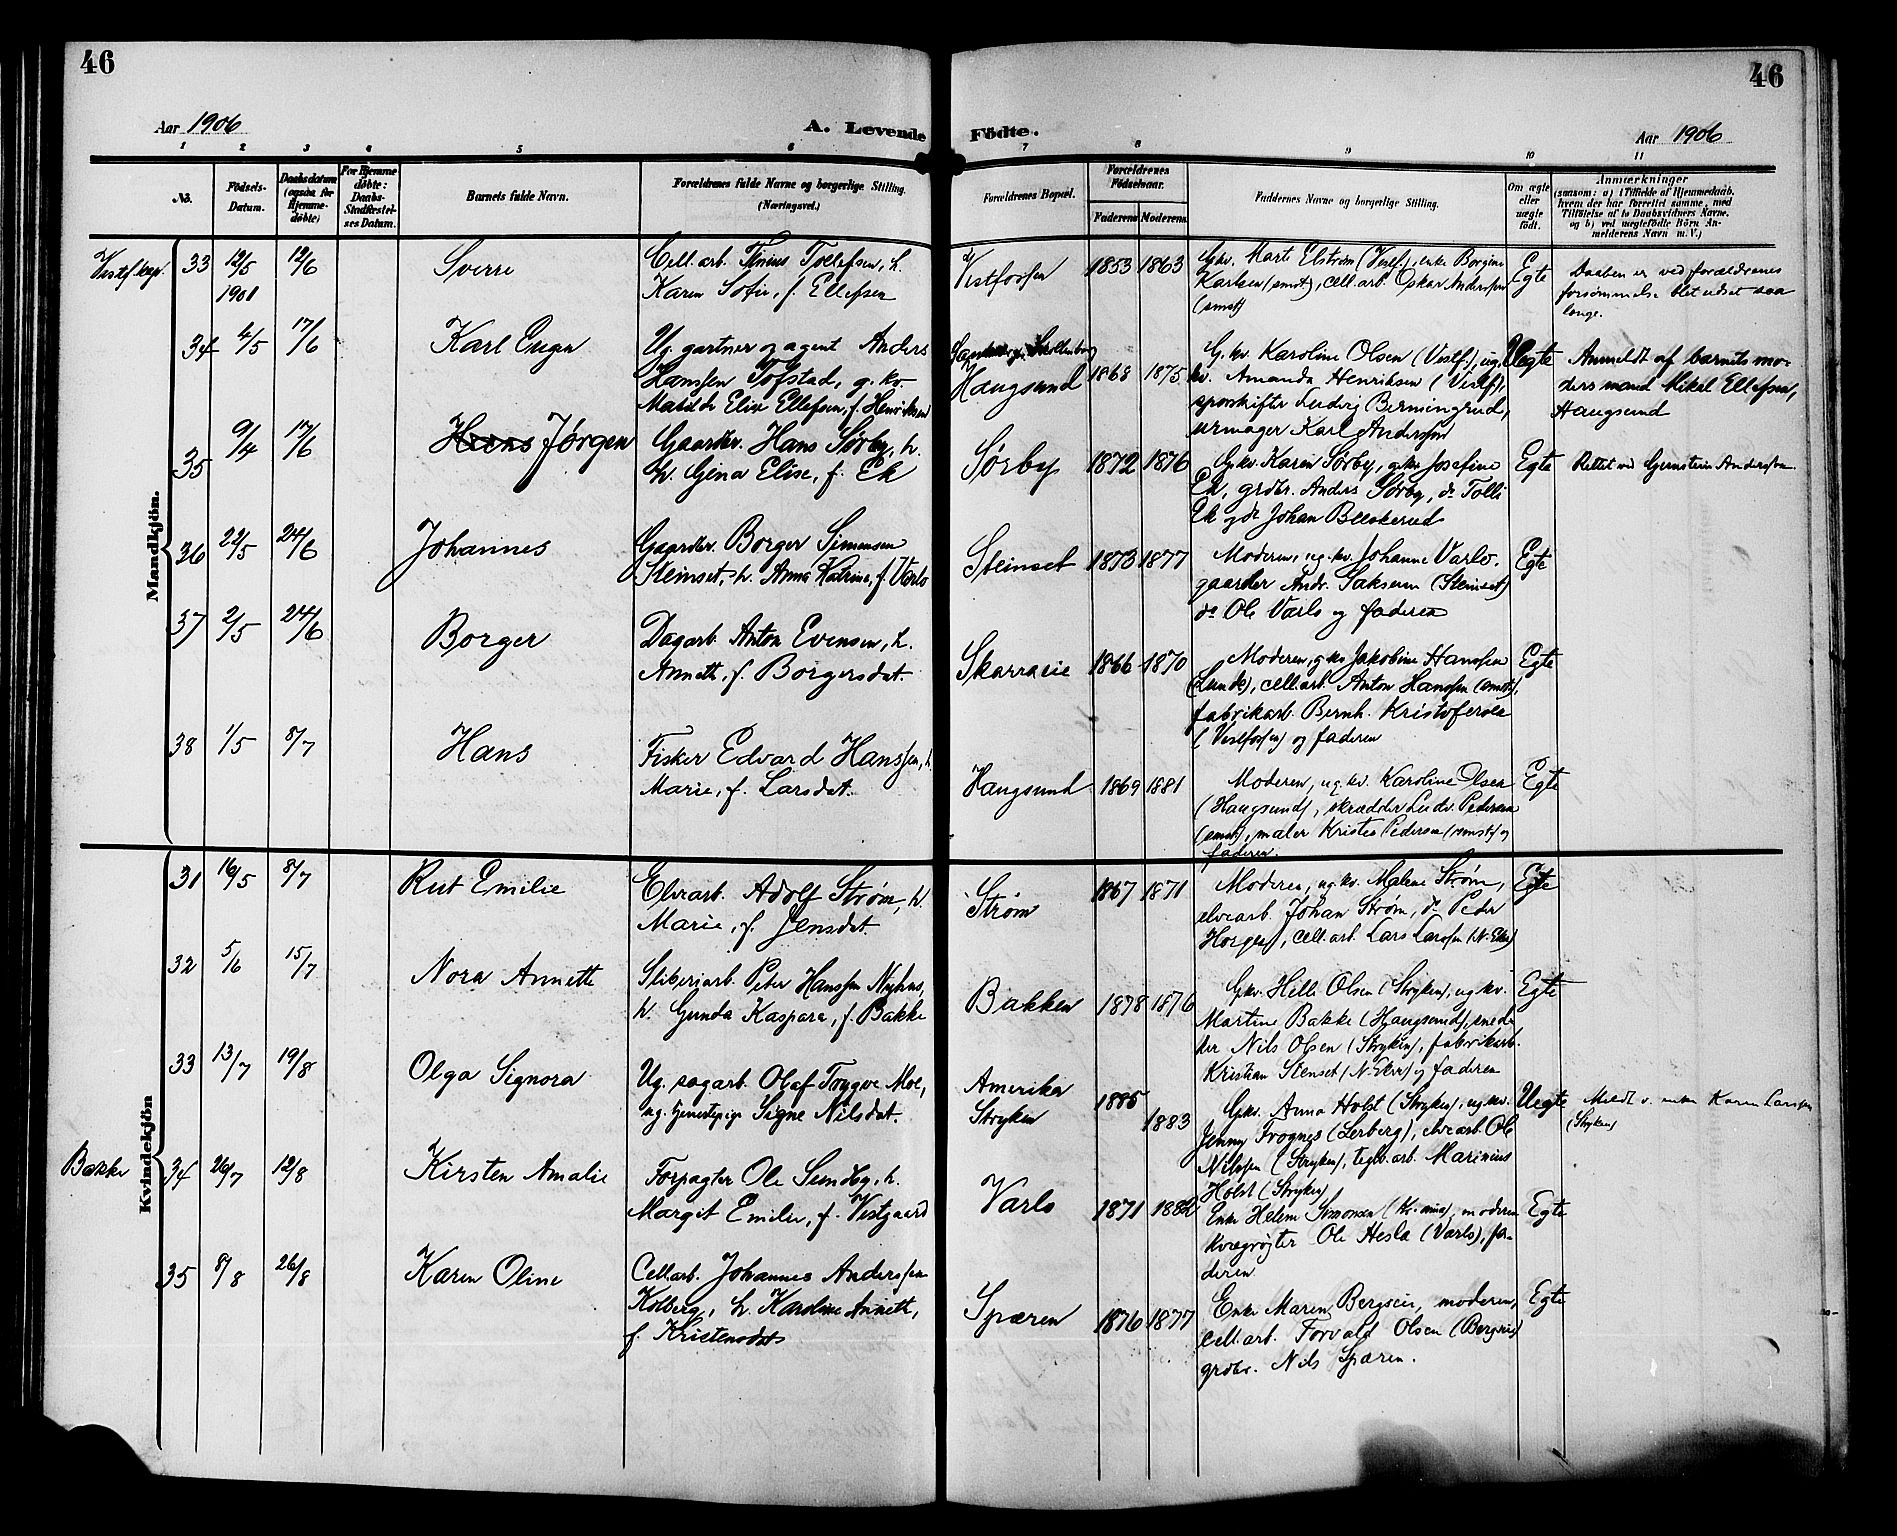 46
46
Aar 1906
A. Levende Fødte.
Aar 1906
1 2 3 4 5 6 7 8 9 10 11
No.
Fødsels-Datum.
Daabsdatum (ogsaa for Hjemme-døbte)
For Hjemme døbte: Daabs-Stadfæstel-ses Datum.
Barnets fulde Navn.
Forældrenes fulde Navne og borgerlige Stilling.
(Næringsvei.)
Forældrenes Bopæl.
Forældrenes Fødselsaar.
Faderens Moderens
Faddernes Navne og borgerlige Stilling.
Om ægte eller uægte født.
Anmærkninger
(saasom: a) i Tilfælde af Hjemmedaab, hvem der har forrettet samme, med Tilføielse af to Daabsvidners Navne, og b) ved uægtefødte Børn An-melderens Navn m.V.)
Mandkjön.
Vestf. kap. 33 12/5 1901 12/6 Sverre
Cell.arb. Tinius Tollefsen, h.
Karen Sofie, f. Ellefsen
Vestfossen 1853 1863
Gkv. Marte Elstrøm (Vestf.), enke Borgine
Karlsen (smst), cell.arb. Oskar Anderssen
(smst)
Egte
Daaben er ved forældrenes
forsømmelse blet udsat saa
længe.
34 4/5 17/6 Karl Eugen
Ug. gartner og agent Anders
Hanssen Tofstad, g.kv.
Matilde Elise Ellefsen, f. Henriksen
Haugsund 1868 1875
G.kv. Karoline Olsen (Vestf.), ug.
kv. Amanda Henriksen (Vestf),
sporskifter Ludvig Bermingrud,
urmager Karl Anderssen
Uegte
Anmeldt af barnets mo-
ders mand Mikal Ellefsen,
Haugsund
35 9/4 17/6 Hans Jørgen
Gaardbr. Hans Sørby, h.
h. Gina Elise, f. Ek
Sørby 1872 1876
Gkv. Karen Sørby, gkv. Josefine
Ek, grdbr. Anders Sørby, do Tolli
Ek og do Johan Bleskerud
Egte
Rettet ved Andersen
36 22/5 24/6 Johannes
Gaardbr. Borger Simensen
Steinset, h. Anna Katrine, f. Varlo
Steinset 1873 1877
Moderen, ug.kv. Johanne Varlo.
gaardbr Andr. Saksen (Steinset)
do Ole Varlo og faderen
Egte
37 2/5 24/6 Borger
Dagarb. Anton Evensen, h.
Annette, f. Borgersdat.
Skarraeie 1866 1870
Moderen, gkv Jakobine Hanssen
(Lunde), cell.arb. Anton Hanssen (smst),
fabrikarb. Bernh. Kristofersen
(Vestfossen) og faderen
Egte
38 1/5 8/7 Hans
Fisker Edvard Hanssen, h.
Marie, f. Larsdat.
Haugsund 1869 1881
Moderen, ug.kv. Karoline Olsen
(Haugsund), skrædder Ludv. Pedersen
(smst), maler Kristen Pedersen (smst) og
faderen.
Egte
Kvindekjön
31 16/5 8/7 Rut Emilie
Elvearb. Adolf Strøm, h.
Marie, f. Jensdat.
Strøm 1867 1871
Moderen, ug.kv. Malene Strøm,
elvearb. Johan Strøm, do Peder
Horgen, cell.arb. Lars Larssen (N. Eker)
Egte
32 5/6 15/7 Nora Annette
Sliberiarb. Peter Hanssen Nyhus,
h. Gunda Kaspara, f. Bakke
Bakken 1878 1876
Gkv. Helle Olsen (Stryken), ug kv.
Martine Bakke (Haugsund), sned
ker Nils Olsen (Stryken), fabrikarb.
Kristian Stenset (N. Eker) og faderen
Egte
33 13/7 19/8 Olga Signora
Ug. sagarb. Olaf Trygve Moe,
ug. tjenestepige Signe Nilsdat.
Amerika
Stryken 1885 1883
Gkv. Anna Holst (Stryken), ug.kv.
Jenny Frognes (Lerberg), elvearb. Ole
Nilssen (Stryken), teglv.arb. Marinius
Holst (Stryken)
Uegte
Meldt v. enke Karen Larssen
(Stryken)
Bakke 34 26/7 12/8 Kirsten Amalie
Forpagter Ole Sundby, h.
Margit Emilie, f. Vestgaard
Varlo 1871 1882
Enke Helene Simonsen, moderen
kvægrøgter Ole Hesla (Varlo), fa-
deren
Egte
35 8/8 26/8 Karen Oline
Cell.arb. Johannes Anderssen
Kolberg, h. Karoline Annette,
f. Kristensdat
Spæren 1876 1877
Enke Maren Bergseie, moderen,
cell.arb. Torvald Olsen (Bergseie)
grdbr. Nils Spæren.
Egte